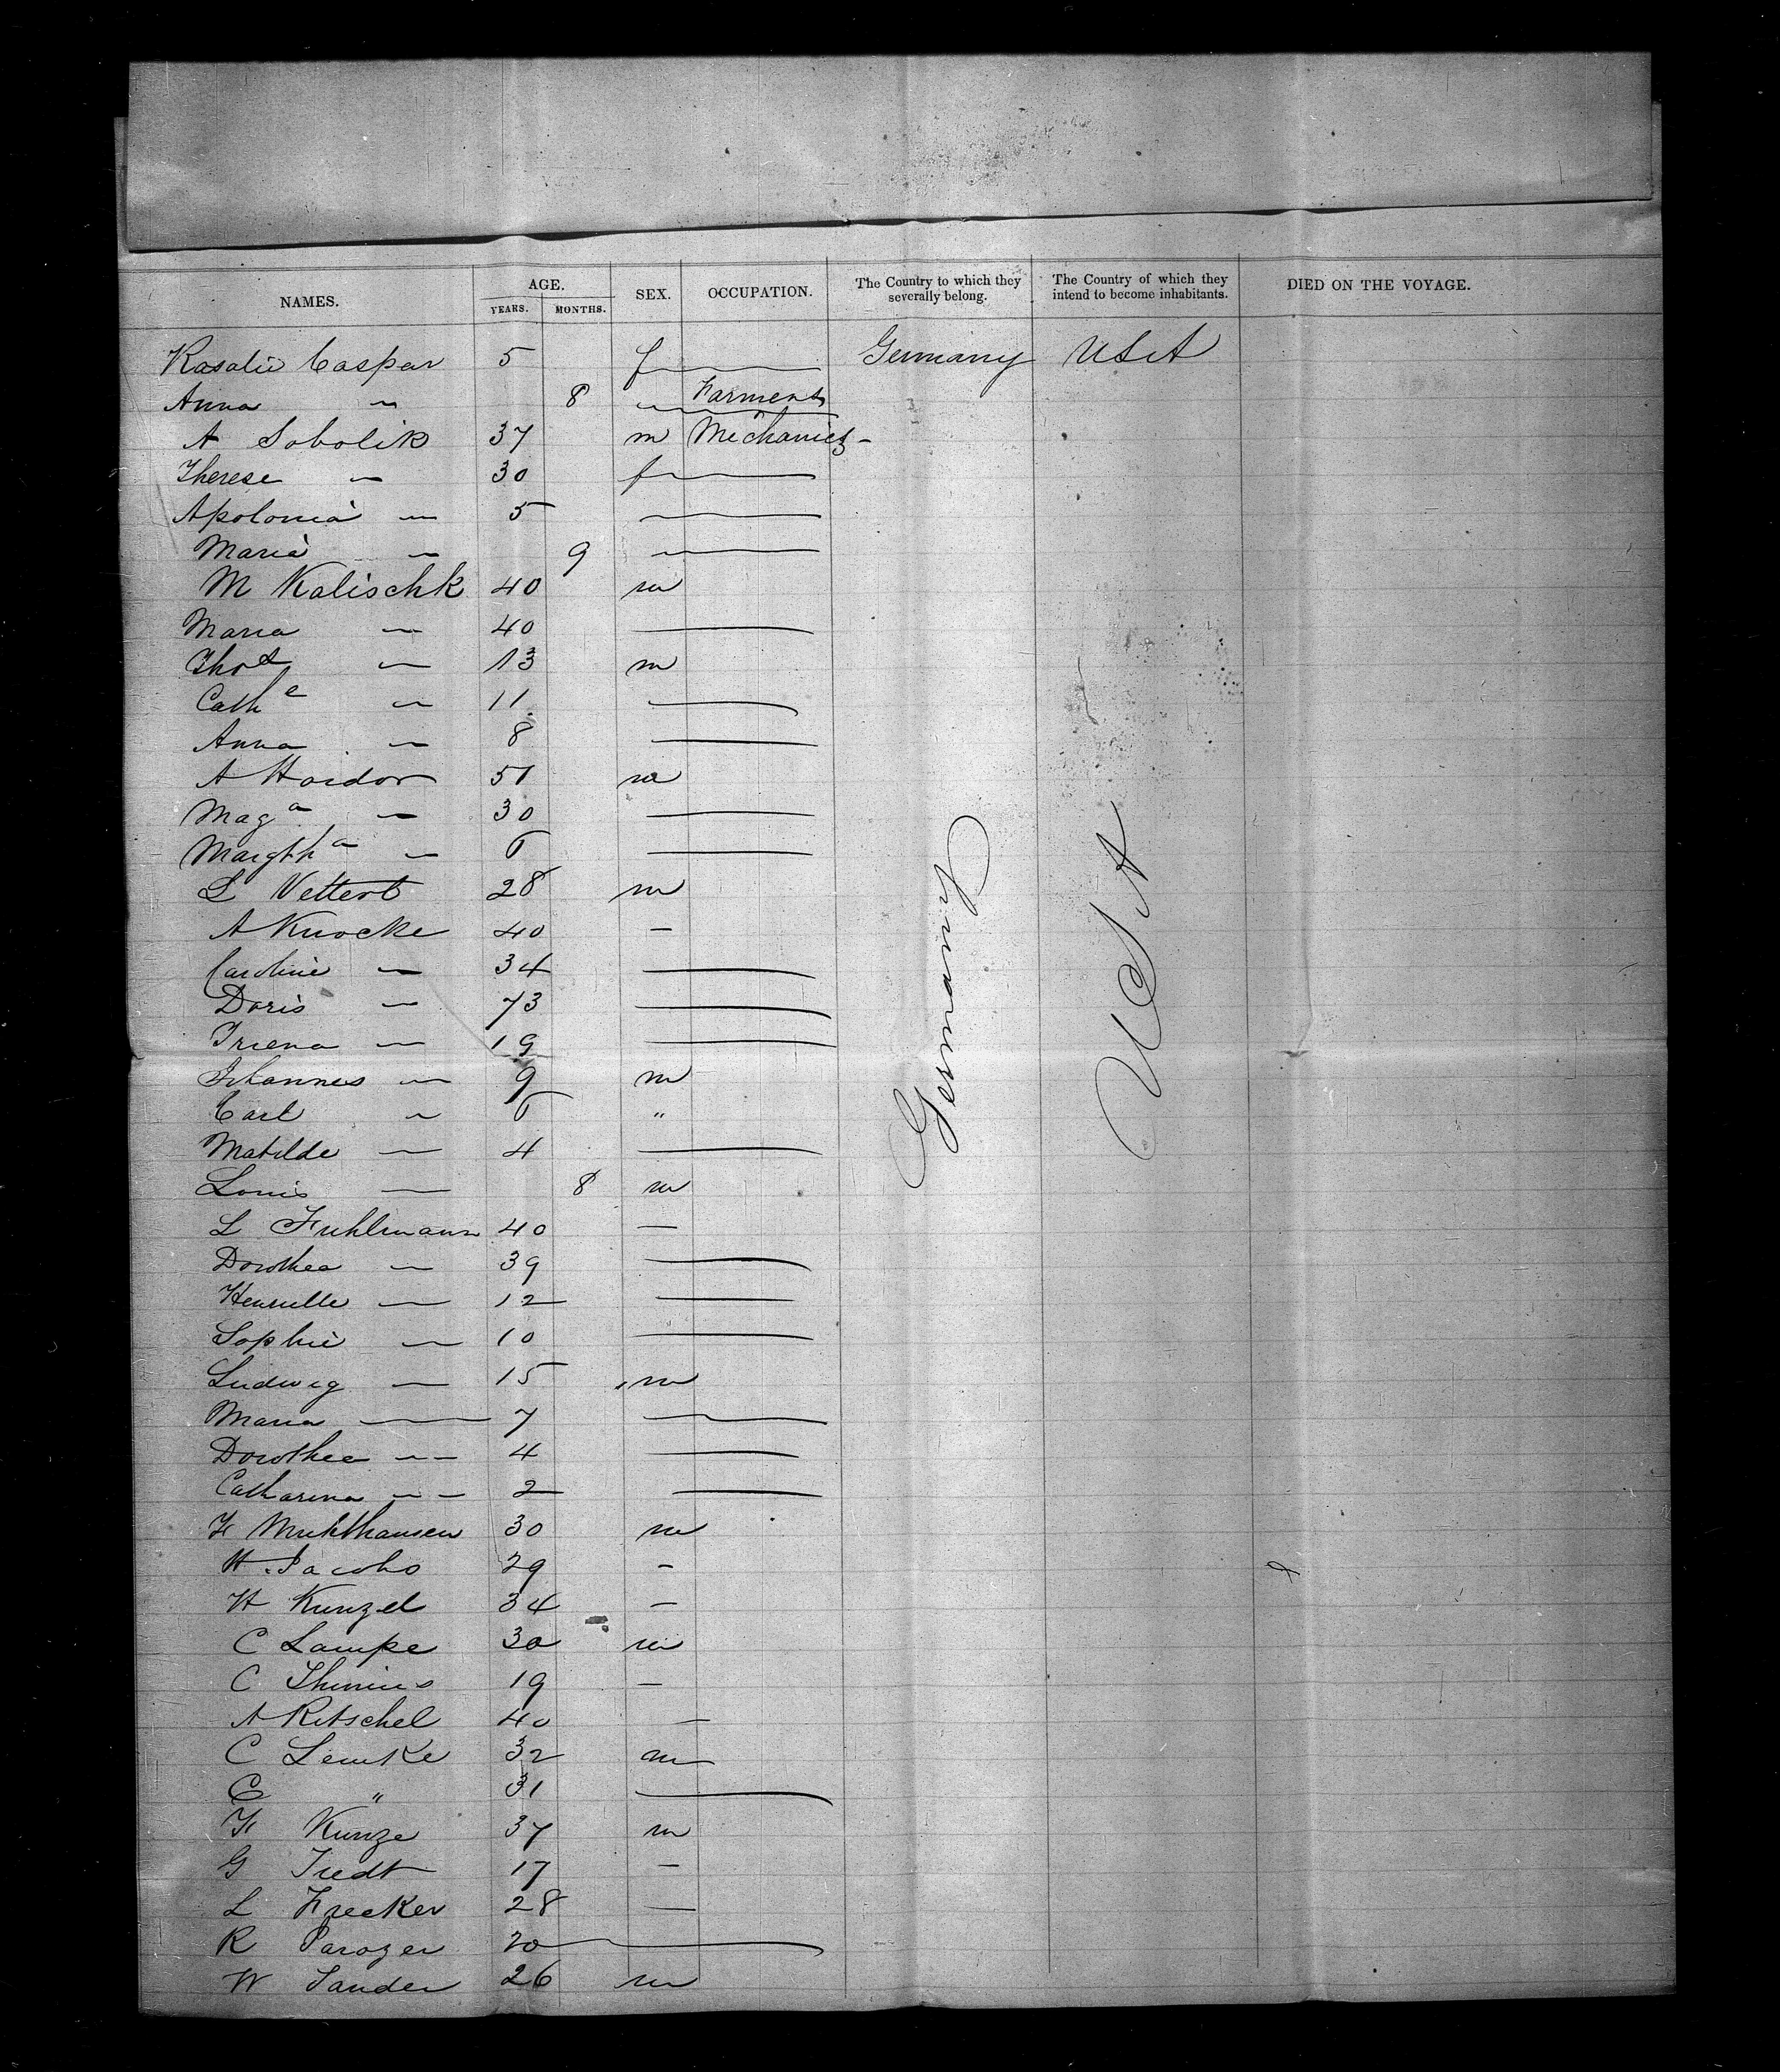 NAMES. AGE. YEARS. MONTHS. SEX. OCCUPATION. The Country to which they severally belong. The Country of which they intend to become inhabitants. DIED ON THE VOYAGE.
Rosalie Caspar 5 f — Germany USA
Anna " 8 " Farmers
A Sobolik 37 m Mechanics -
Therese — 30 f —
Apolonia — 5 —
Maria — 9 —
M Kalischk 40 m
Maria — 40 —
Thos — 13 m
Cathe — 11 —
Anna — 8 —
A Haidor 51 m
Maga — 30 —
Margtha — 6 —
L Vettert 28 m
A Knocke 40 —
Caroline — 34 —
Doris — 73 —
Triena — 19 —
Johannes — 9 m
Carl — 6 "
Matilde — 4 —
Louis — 8 m
L Fuhlmann 40 —
Dorothea — 39 —
Henrielle — 12 —
Sophie — 10 —
Ludwig — 15 m
Maria — 7 —
Dorothea — 4 —
Catharina — 2 —
F Muhlhausen 30 m
H. Jacobs 29 —
H Kunzel 34 —
C Lampe 30 m
C Thinius 19 —
A Ritschel 40 —
C Lemke 32 m
C " 31 —
F Kunze 37 m
G Tredt 17 —
L Frecker 28 —
R Parozer 20 —
W Sander 26 m
Germany
USA